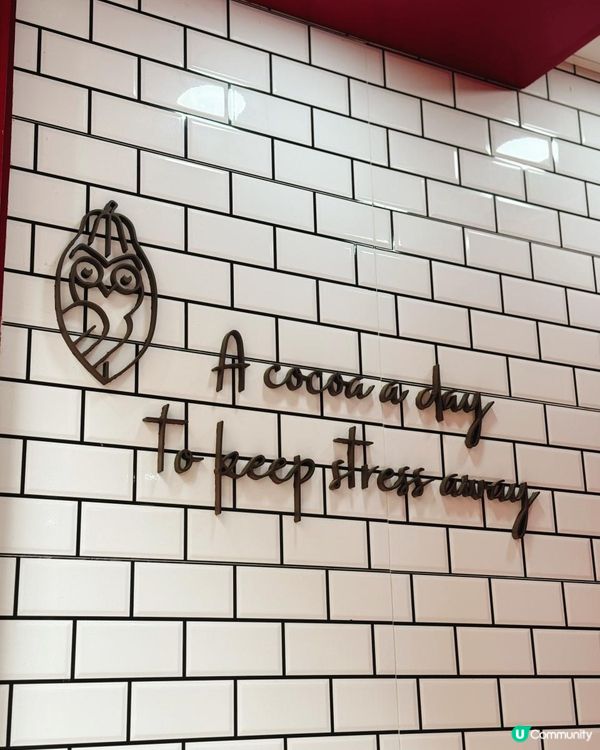 A cocoa a day
to keep stress away
U Community